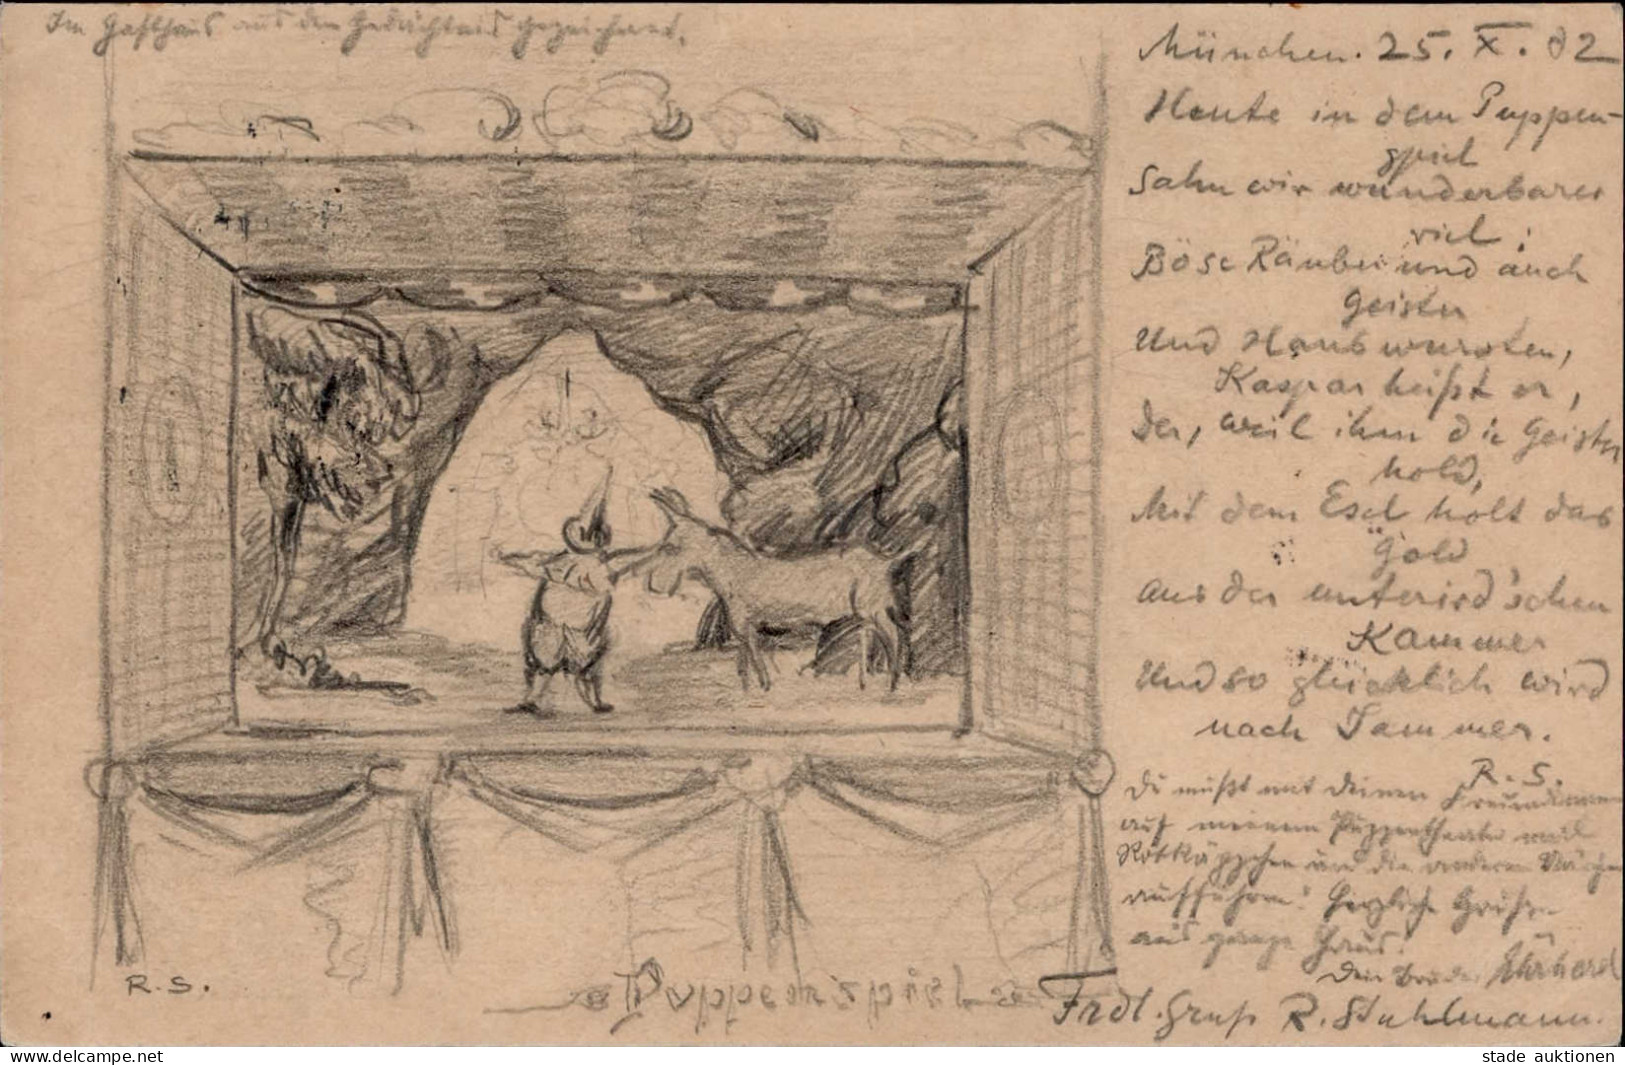 Im Gasthaus aus dem Gedächtnis gezeichnet.
München. 25. X. 02
Heute in dem Puppen-
spiel
Sahn wir wunderbares
viel:
Böse Räuber und auch
Geister
Und Hans wursten,
Kaspar heißt er,
Der, weil ihm die Geister
hold,
Mit dem Esel holt das
Gold
aus der unterird'schen
Kammer
Und so glücklich wird
nach Jammer.
R. S.
Du mußt mit Deinen Freundinnen
auf meinem Puppentheater mal
Rotkäppchen und die anderen Märchen
aufführen! Herzliche Grüße
ans ganze Haus!
Dein Bruder Ehrhard
Frdl. Gruß R. Stuhlmann.
R. S.
Puppenspiel
stade auktionen